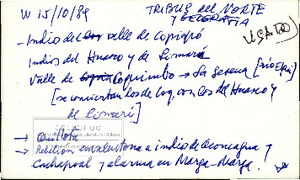 W 15/10/89
TRIBUS del NORTE
Y GEOGRAFIA
USADO
- Indios del valle de Copiapó
Indios del Huasco y de Limarí
Valle de Coquimbo → La Serena [río Elqui]
[se conectan los de Coq. con los del Huasco y
de Limarí]
→ Quillota
→ Rebelión envalentona a indios de Aconcagua y
Cachapoal y alarma en Marga-Marga.